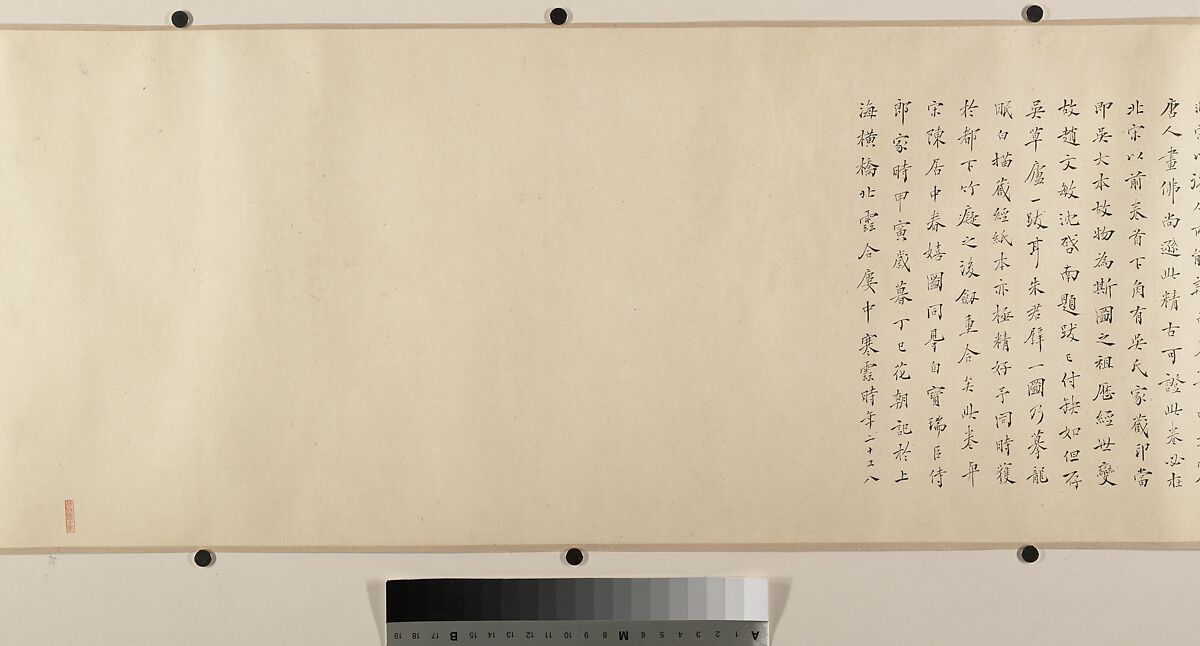 唐人畫佛尚遜此精古可證此卷必在
北宋以前卷首下角有吳氏家藏印當
即吳大本故物為斯圖之祖歷經世變
故趙文敏沈啓南題跋已付缺如但存
吳草廬一跋耳朱君犀一圖乃摹龍
眠白描藏經紙本亦極精好予同時獲
於都下竹癡之後劔重合矣此卷與
宋陳居中春嬉圖同得自寶瑞臣侍
郎家時甲寅歲暮丁巳花朝記於上
海橫橋北雲合廔中寒雲時年二十又八
19 18 17 B 15 14 13 12 11 10 9 8 M 6 5 4 3 2 1 A